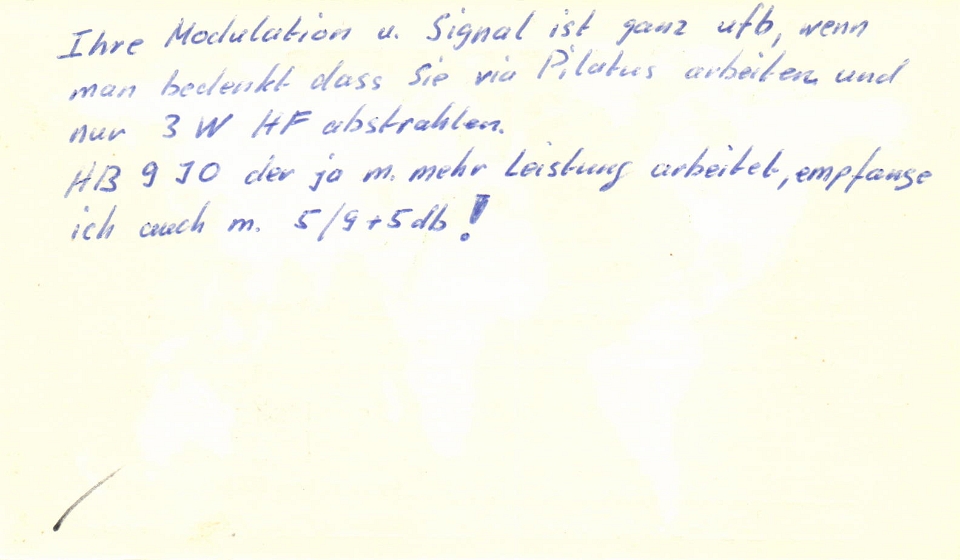 Ihre Modulation u. Signal ist ganz ufb, wenn
man bedenkt dass Sie via Pilatus arbeiten und
nur 3 W HF abstrahlen.
HB 9 JO der ja m. mehr Leistung arbeitet, empfange
ich auch m. 5/9+5db!